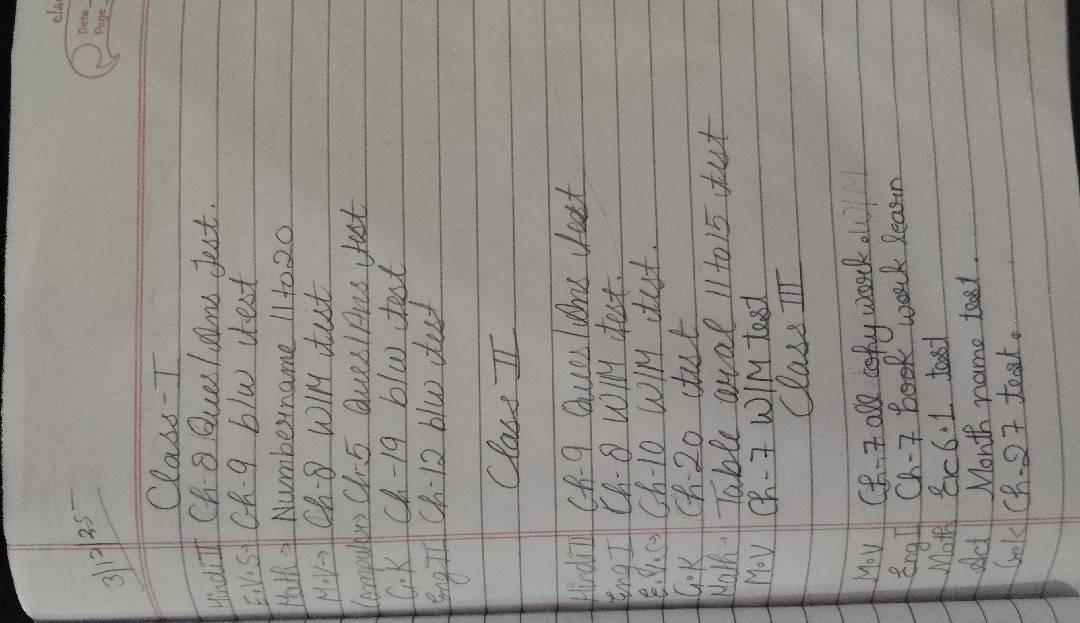 Date
Page
3/12/25
Class - I
Hindi II Ch-8 Ques/Ans test.
E.V.S→ Ch-9 b/w test
Math→ Numbername 11 to 20
M.V→ Ch-8 W/M test
Computer→ Ch-5 Ques/Ans test
G.K Ch-19 b/w test
Eng II Ch-12 b/w test
Class II
Hindi II Ch-9 Ques/Ans test
Eng I Ch-8 W/M test.
E.V.S→ Ch-10 W/M test.
G.K Ch-20 test
Math→ Table oral 11 to 15 test
M.V Ch-7 W/M test
Class III
M.V Ch-7 all copy work W/M
Eng I Ch-7 book work learn
Math Ex 6.1 test
Act Month name test.
G.K Ch-27 test.